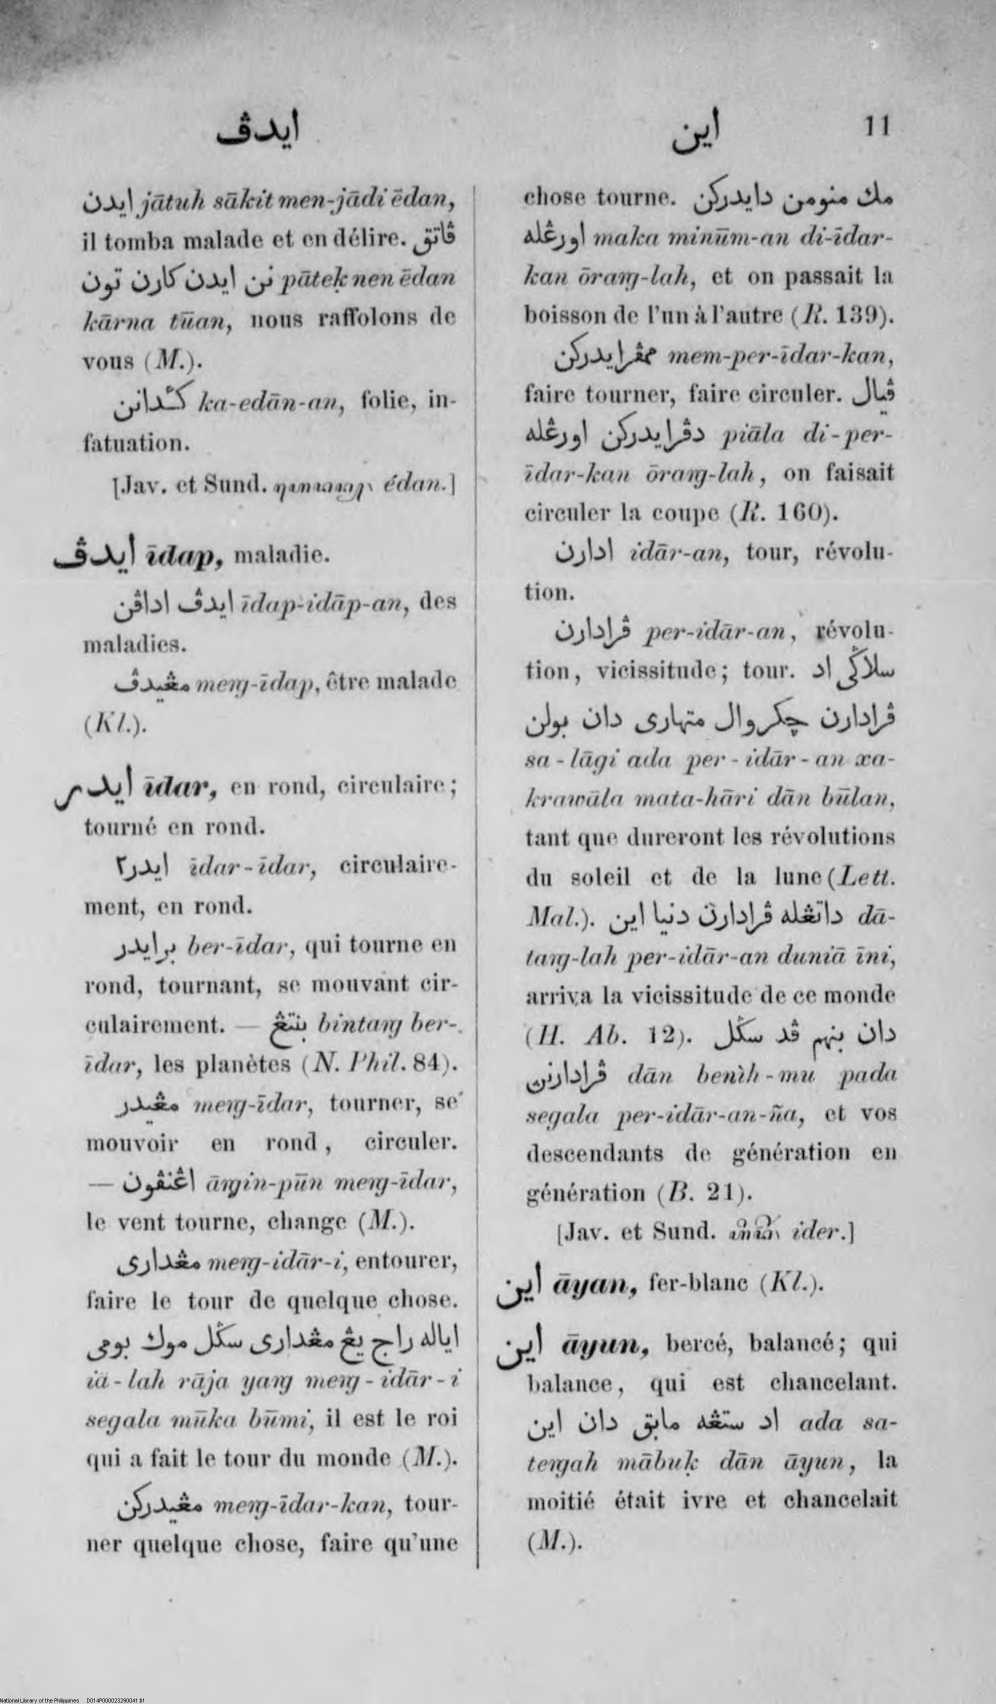 ايدڤ
اين
11
ايدن jātuh sākit men-jādi ēdan,
il tomba malade et en délire. ڤاتق
نن ايدن كارن تون pātek̩ nen ēdan
kārna tūan, nous raffolons de
vous (M.).
ka-edān-an, folie, in-
fatuation.
[Jav. et Sund. édan.]
ايدڤ īdap, maladie.
ايدڤ اداڤن īdap-idāp-an, des
maladies.
مڠيدڤ meng-īdap, être malade
(Kl.).
ايدر īdar, en rond, circulaire;
tourné en rond.
ايدر٢ īdar-īdar, circulaire-
ment, en rond.
برايدر ber-īdar, qui tourne en
rond, tournant, se mouvant cir-
culairement. — بنتڠ bintang ber-
īdar, les planètes (N. Phil. 84).
مڠيدر meng-īdar, tourner, se
mouvoir en rond, circuler.
— اڠنڤون āngin-pūn meng-īdar,
le vent tourne, change (M.).
مڠداری meng-idār-i, entourer,
faire le tour de quelque chose.
اياله راج يڠ مڠداری سڬل موك بومی
iā-lah rāja yang meng-idār-i
segala mūka būmi, il est le roi
qui a fait le tour du monde (M.).
مڠيدركن meng-īdar-kan, tour-
ner quelque chose, faire qu'une
chose tourne. مك منومن دايدركن
اورڠله maka minūm-an di-īdar-
kan ōrang-lah, et on passait la
boisson de l'un à l'autre (R. 139).
ممڤرايدركن mem-per-īdar-kan,
faire tourner, faire circuler. ڤيال
دڤرايدركن اورڠله piāla di-per-
īdar-kan ōrang-lah, on faisait
circuler la coupe (R. 160).
ادارن idār-an, tour, révolu-
tion.
ڤرادارن per-idār-an, révolu-
tion, vicissitude; tour. سلاڬی اد
ڤرادارن چكروال متهاری دان بولن
sa-lāgi ada per-idār-an xa-
krawāla mata-hāri dān būlan,
tant que dureront les révolutions
du soleil et de la lune (Lett.
Mal.). داتڠله ڤرادارن دنيا اين dā-
tang-lah per-idār-an duniā īni,
arriva la vicissitude de ce monde
(H. Ab. 12). دان بنهم ڤد سڬل
ڤرادارنن dān benìh-mu pada
segala per-idār-an-ña, et vos
descendants de génération en
génération (B. 21).
[Jav. et Sund. ider.]
اين āyan, fer-blanc (Kl.).
اين āyun, bercé, balancé; qui
balance, qui est chancelant.
اد ستڠه مابق دان اين ada sa-
tengah mābuk̩ dān āyun, la
moitié était ivre et chancelait
(M.).
National Library of the Philippines